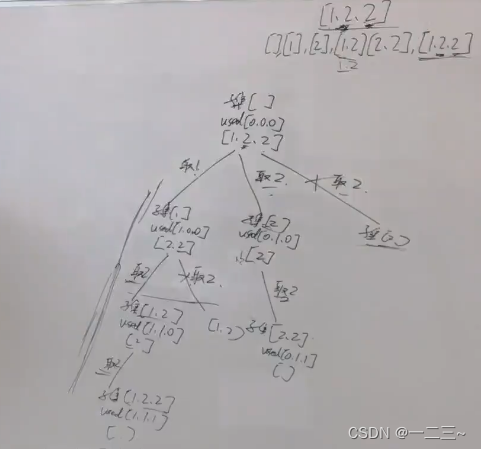 [1.2.2]
[],[1],[2],[1.2][2.2],[1.2.2]
1.2
子集[ ]
used[0.0.0]
[1.2.2]
取1
取2.
取2.
子集[1.]
used[1.0.0]
[2.2]
子集[2]
used[0.1.0]
[2]
子集[2]
取2
取2.
取2
子集[1.2]
used[1.1.0]
[2]
[1.2]
子集[2.2]
used[0.1.1]
[ ]
取2
子集[1.2.2]
used[1.1.1]
[ ]
CSDN @一二三~